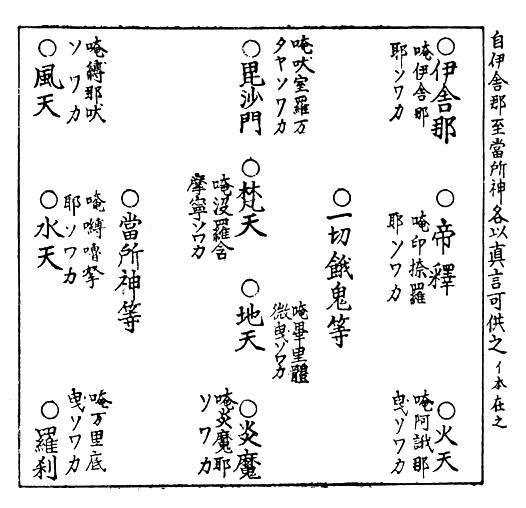 自伊舎那至當所神各以真言可供之 イ本在之
〇伊舎那
唵伊舎那
耶ソワカ
〇帝釋
唵印捺羅
耶ソワカ
〇火天
唵阿誐那
曳ソワカ
〇一切餓鬼等
〇毘沙門
唵吠室羅万
タヤソワカ
〇梵天
唵没羅含
摩寧ソワカ
〇地天
唵畢里體
微曳ソワカ
〇炎魔
唵炎魔耶
ソワカ
〇當所神等
〇風天
唵縛耶吠
ソワカ
〇水天
唵嚩嚕拏
耶ソワカ
〇羅刹
唵万里底
曳ソワカ